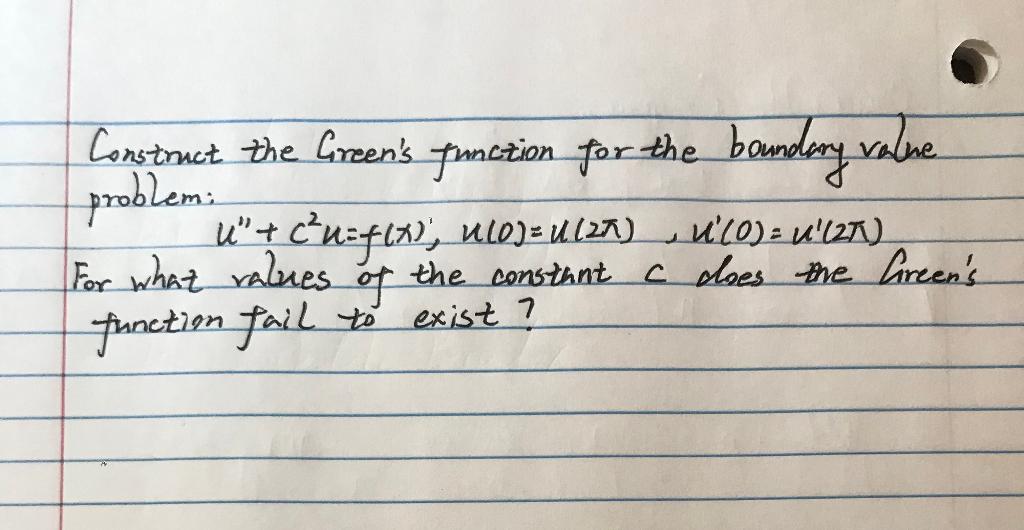 Construct the Green's function for the boundary value
problem:
u"+ c²u=f(x), u(0)=u(2π) , u'(0)=u'(2π)
For what values of the constant c does the Green's
function fail to exist ?